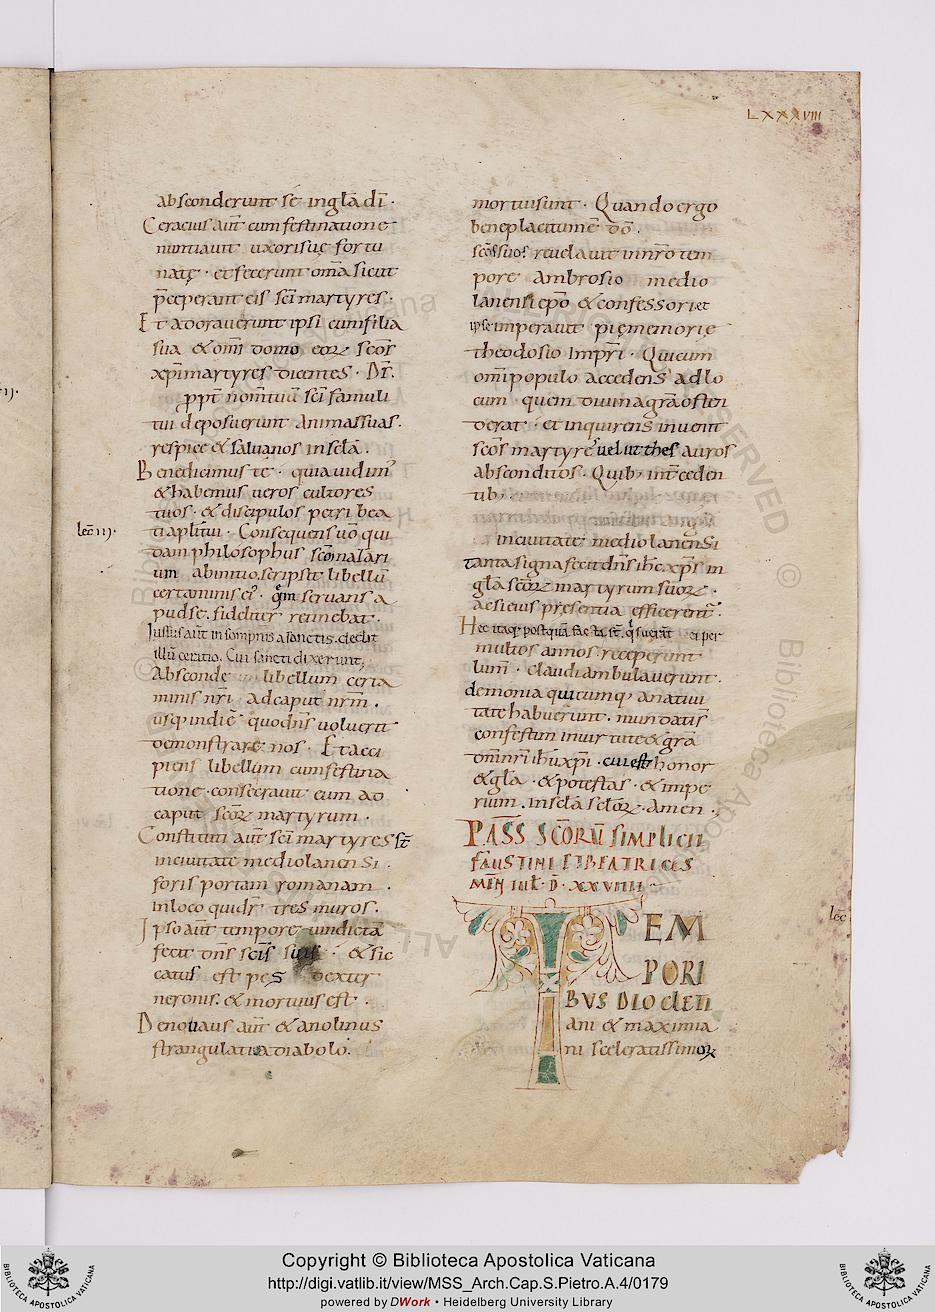 LXXXVIII
absconderunt se inglā dī ·
Ceracius aūt cum festinatione
nuntiavit uxori suę fortu
natę · et fecerunt om̄a sicut
p̄ceperant eis sc̄i martyres ·
Et adoraverunt ipsi cum filia
sua & om̄i domo eoꝝ scōs
xp̄i martyres dicentes · Dn̄e.
ppt̄ nom̄ tuū sc̄i famuli
tui deposuerunt animas suas.
respice & salva nos in sclā .
Benedicimus te · quia vidim᾽
& habemus veros cultores
tuos · & discipulos petri bea
lec̄ iij·
ti apl̄i tui · Consequens vō qui
dam philosophus
um abinitio scripsit libellū
certaminis eoꝝ · qm̄ servans a
pud se . fideliter retinebat .
Iussus aūt in sompnis a sanctis . dedit
illū ceratio . Cui sancti dixerunt,
Absconde libellum certa
minis nr̄i ad caput nrm̄ .
usq; in diē quo dn̄s voluerit
demonstrare nos · Et acci
piens libellum cum festina
tione · consecravit eum ad
caput scōꝝ martyrum .
Constituti aūt sc̄i martyres st̄
in civitate mediolanensi .
foris portam romanam .
in loco qui dr̄ tres muros .
Ipso aūt tempore vindictā
fecit dn̄s scīs suis · & sic
catus est pes dexter
neronis . & mortuus est .
Denotiaus aūt & anolinus
strangulati a diabolo .
mortui sunt · Quando ergo
bene placitum ē dō .
scōs suos revelavit in nr̄o tem
pore ambrosio medio
lanensi ep̄o & confessori et
ipse imperavit pię memorię
theodosio Impr̄i · Qui cum
om̄i populo accedens ad lo
cum quem divina grā osten
derat · et inquirens invenit
scōs martyres velut thes auros
absconditos · Quib; int̄ ceden
tib;
in civitate mediolanensi
tanta signa fecit dn̄s ih̄c xp̄s in
glā scōꝝ martyrum suoꝝ .
ac si eius presentia efficerent᷑ .
Hec itaq; postquā facta st̄ ei per
multos annos . receperunt
lum̄ . Claudi ambulaverunt .
demonia quicumq; a nativi
tate habuerunt . mundatis
confestim in virtute & grā
dn̄i nr̄i ih̄u xp̄i . cui est honor
& glā . & potestas . & impe
rium . in sclā scloꝝ . amen .
PASS SCORŪ SIMPLICII
FAUSTINI ET BEATRICIS
MEN̄ IUL̄ · D̄ · XXVIIII
lec̄
TEM
PORI
BVS DIOCLETI
ani & maximia
ni sceleratissimoꝝ
Copyright © Biblioteca Apostolica Vaticana
http://digi.vatlib.it/view/MSS_Arch.Cap.S.Pietro.A.4/0179
powered by DWork • Heidelberg University Library